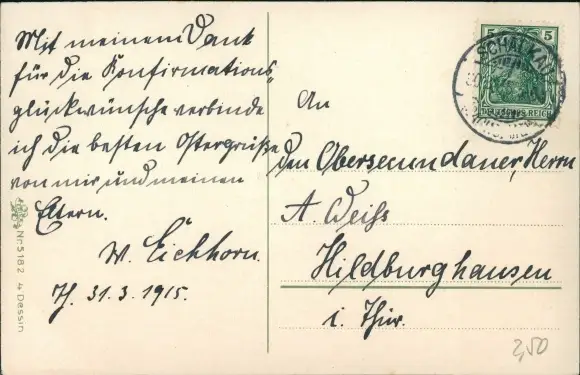 Mit meinem Dank
für die Konfirmations-
glückwünsche verbinde
ich die besten Ostergrüße
von mir und meinen
Eltern.
W. Eichhorn.
31.3.1915.
An
den Obersecundaner, Herrn
A. Weiß
Hildburghausen
i. Thür.
5 5
DEUTSCHES REICH
SCHALKAU
Nr. 5182 4 Dessin
2,50